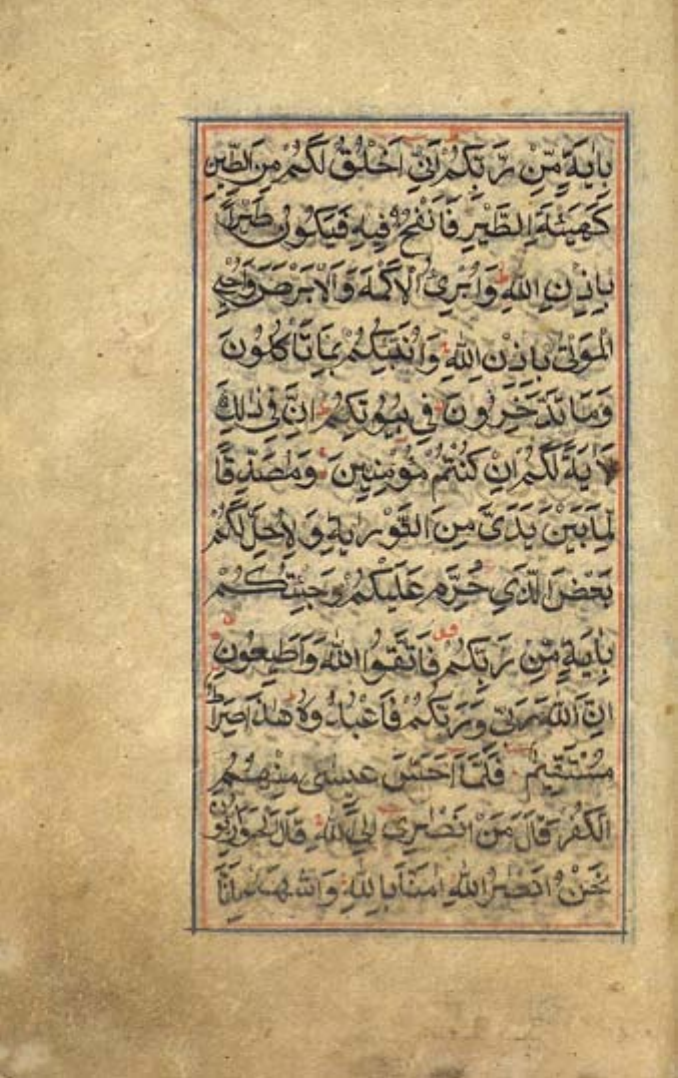 بِاٰيَةٍ مِّنْ رَّبِّكُمْ اَنِّيْ اَخْلُقُ لَكُمْ مِنَ الطِّيْنِ
كَهَيْئَةِ الطَّيْرِ فَاَنْفُخُ فِيْهِ فَيَكُوْنُ طَيْرًا
بِاِذْنِ اللّٰهِ وَاُبْرِئُ الْاَكْمَهَ وَالْاَبْرَصَ وَاُحْيِ
الْمَوْتٰى بِاِذْنِ اللّٰهِ وَاُنَبِّئُكُمْ بِمَا تَاْكُلُوْنَ
وَمَا تَدَّخِرُوْنَ فِيْ بُيُوْتِكُمْ اِنَّ فِيْ ذٰلِكَ
لَاٰيَةً لَّكُمْ اِنْ كُنْتُمْ مُّؤْمِنِيْنَ وَمُصَدِّقًا
لِّمَا بَيْنَ يَدَيَّ مِنَ التَّوْرٰىةِ وَلِاُحِلَّ لَكُمْ
بَعْضَ الَّذِيْ حُرِّمَ عَلَيْكُمْ وَجِئْتُكُمْ
بِاٰيَةٍ مِّنْ رَّبِّكُمْ فَاتَّقُوا اللّٰهَ وَاَطِيْعُوْنِ
اِنَّ اللّٰهَ رَبِّيْ وَرَبُّكُمْ فَاعْبُدُوْهُ هٰذَا صِرَاطٌ
مُّسْتَقِيْمٌ فَلَمَّا اَحَسَّ عِيْسٰى مِنْهُمُ
الْكُفْرَ قَالَ مَنْ اَنْصَارِيْ اِلَى اللّٰهِ قَالَ الْحَوَارِيُّوْنَ
نَحْنُ اَنْصَارُ اللّٰهِ اٰمَنَّا بِاللّٰهِ وَاشْهَدْ بِاَنَّا